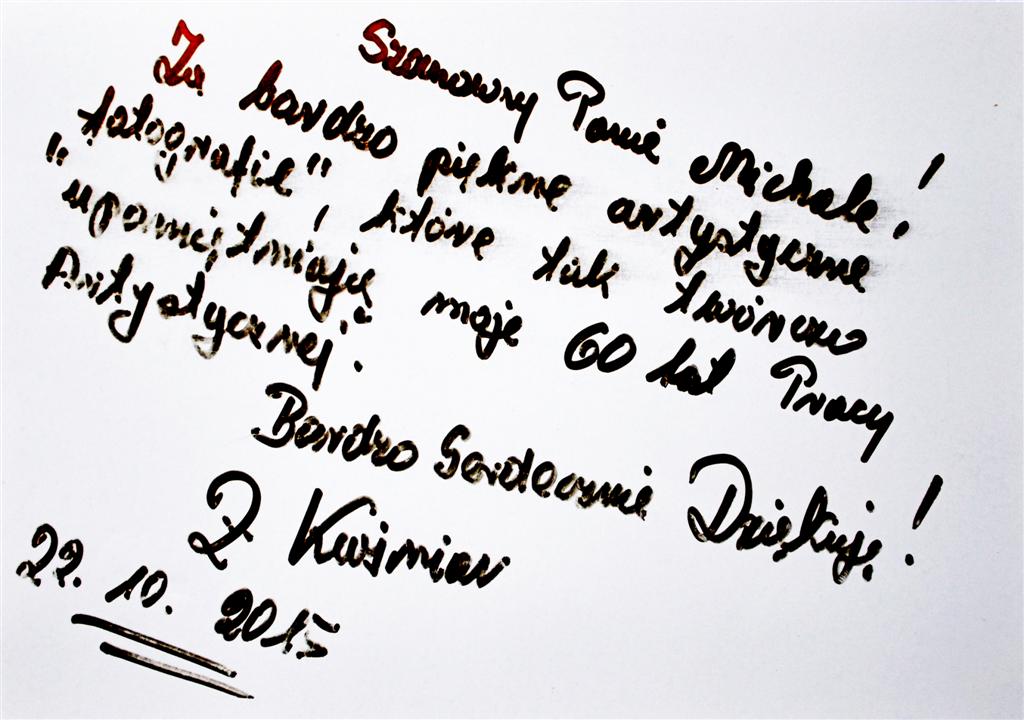 Szanowny Panie Michale!
Za bardzo piękne artystyczne
fotografie", które tak twórczo
"upamiętniają moje 60 lat Pracy
Artystycznej".
Bardzo Serdecznie Dziękuję!
Z Kuźniar
22. 10. 2015